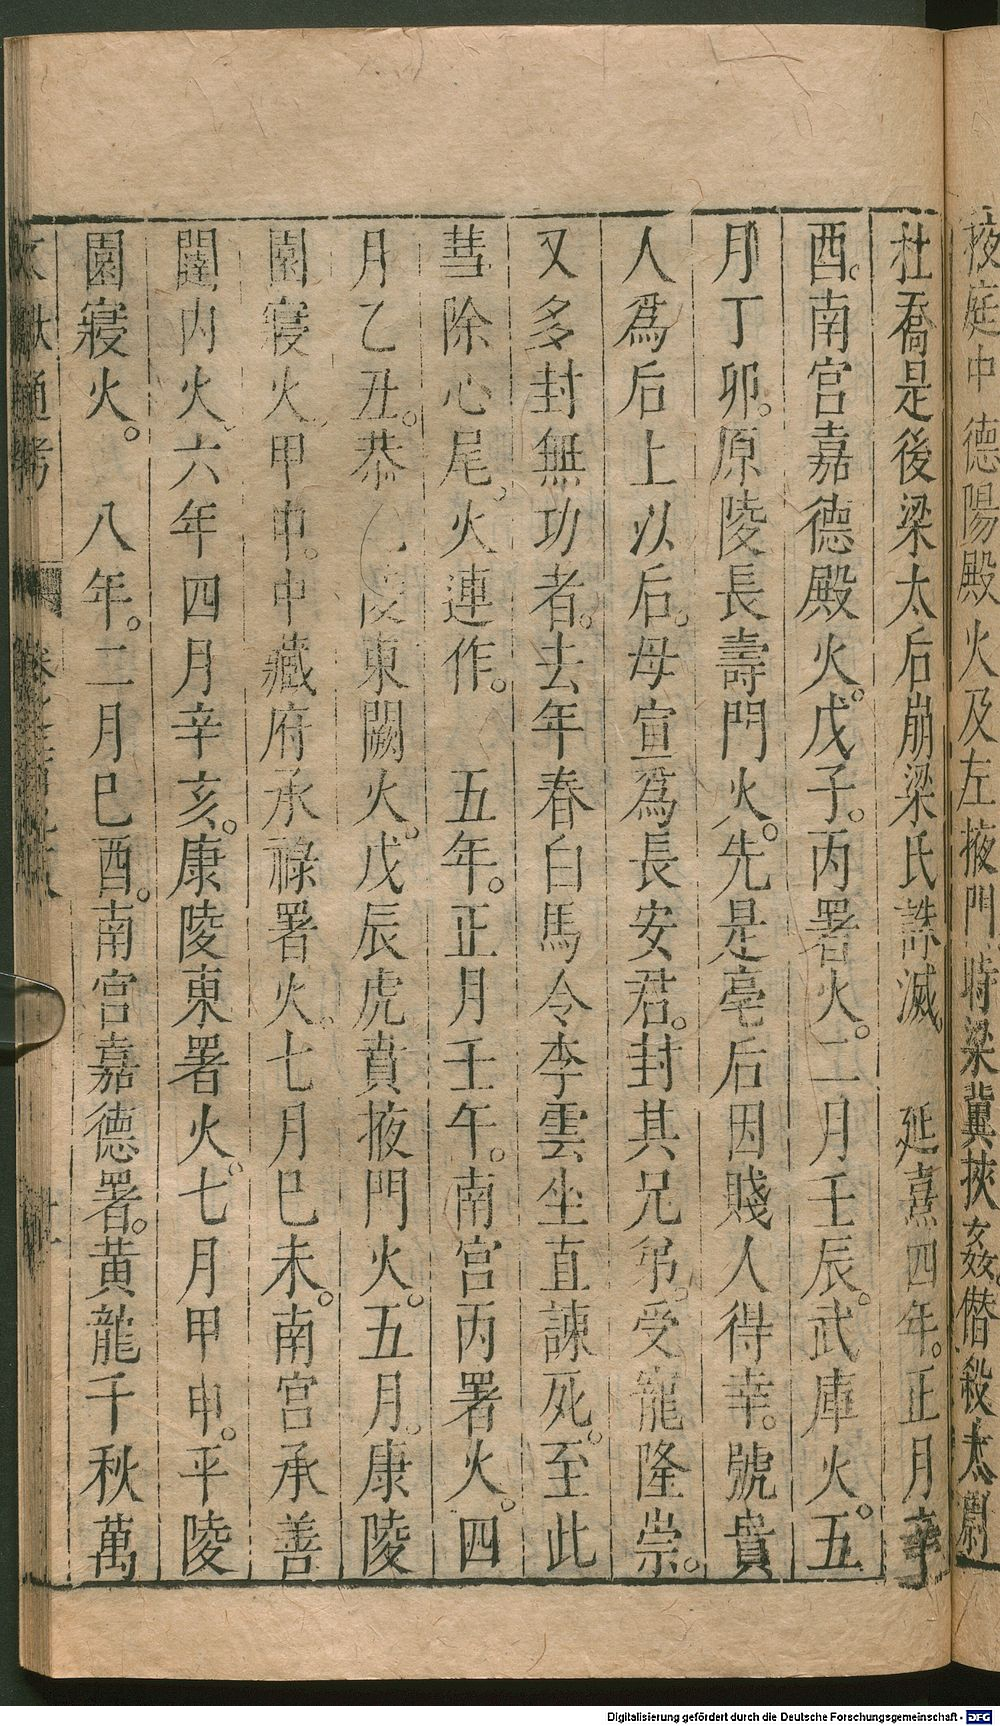 掖庭中德陽殿火及左掖門時梁冀挾姦僭殺太尉
杜喬是後梁太后崩梁氏誅滅。 延熹四年。正月辛
酉。南宮嘉德殿火。戊子。丙署火。二月壬辰。武庫火。五
月丁卯。原陵長壽門火。先是亳后因賤人得幸。號貴
人爲后上以后。母宣爲長安君。封其兄弟。受寵隆崇。
又多封無功者。去年春白馬令李雲坐直諫死。至此
彗除心尾。火連作。 五年。正月壬午。南宮丙署火。四
月乙丑。恭 陵東闕火。戊辰虎賁掖門火。五月。康陵
園寝火。甲申。中藏府承祿署火。七月巳未。南宮承善
闥内火。六年四月辛亥。康陵東署火。七月甲申。平陵
園寢火。 八年。二月巳酉。南宮嘉德署。黃龍千秋萬
文獻通考 卷
Digitalisierung gefördert durch die Deutsche Forschungsgemeinschaft - DFG